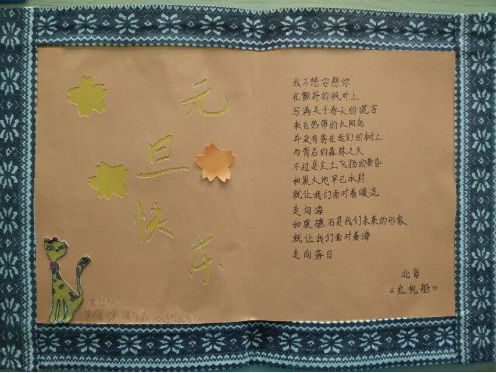 元
旦
快
乐
我不想安慰你
在颤抖的枫叶上
写满关于春天的谎言
来自热带的太阳鸟
并没有落在我们的树上
而背后的森林之火
不过是尘土飞扬的黄昏
如果大地早已冰封
就让我们面对着暖流
走向海
如果礁石是我们未来的形象
就让我们面对着海
走向落日
北岛
《红帆船》